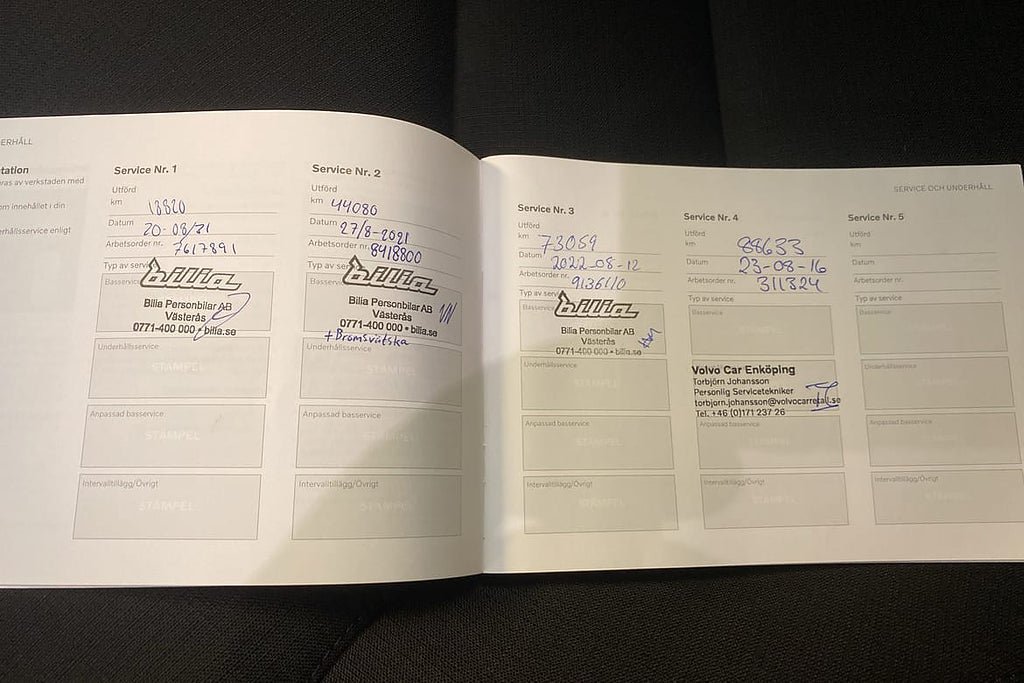 ERHÅLL
tation
ras av verkstaden med
om innehållet i din
erhållsservice enligt
Service Nr. 1
Utförd
km 18820
Datum 20-08/31
Arbetsorder nr. 7617891
Typ av
Basservice
bilia
Bilia Personbilar AB
Västerås
0771-400 000 • bilia.se
Underhållsservice
STÄMPEL
Anpassad basservice
STÄMPEL
Intervalltillägg/Övrigt
STÄMPEL
Service Nr. 2
Utförd
km 44080
Datum 27/8-2021
Arbetsorder nr. 8418800
Typ av
Basservice
bilia
Bilia Personbilar AB
Västerås
0771-400 000 • bilia.se
+Bromsvätska
Underhållsservice
STÄMPEL
Anpassad basservice
STÄMPEL
Intervalltillägg/Övrigt
STÄMPEL
SERVICE OCH UNDERHÅLL
Service Nr. 3
Utförd
km 73059
Datum 2022-08-12
Arbetsorder nr. 9136110
Typ av
Basservice
bilia
Bilia Personbilar AB
Västerås
0771-400 000 • bilia.se
Underhållsservice
STÄMPEL
Anpassad basservice
STÄMPEL
Intervalltillägg/Övrigt
STÄMPEL
Service Nr. 4
Utförd
km 88633
Datum 23-08-16
Arbetsorder nr. 311324
Typ av service
Basservice
STÄMPEL
Volvo Car Enköping
Torbjörn Johansson
Personlig Servicetekniker
torbjorn.johansson@volvocarretail.se
Tel. +46 (0)171 237 26
Anpassad basservice
STÄMPEL
Intervalltillägg/Övrigt
STÄMPEL
Service Nr. 5
Utförd
km
Datum
Arbetsorder nr.
Typ av service
Basservice
STÄMPEL
Underhållsservice
STÄMPEL
Anpassad basservice
STÄMPEL
Intervalltillägg/Övrigt
STÄMPEL